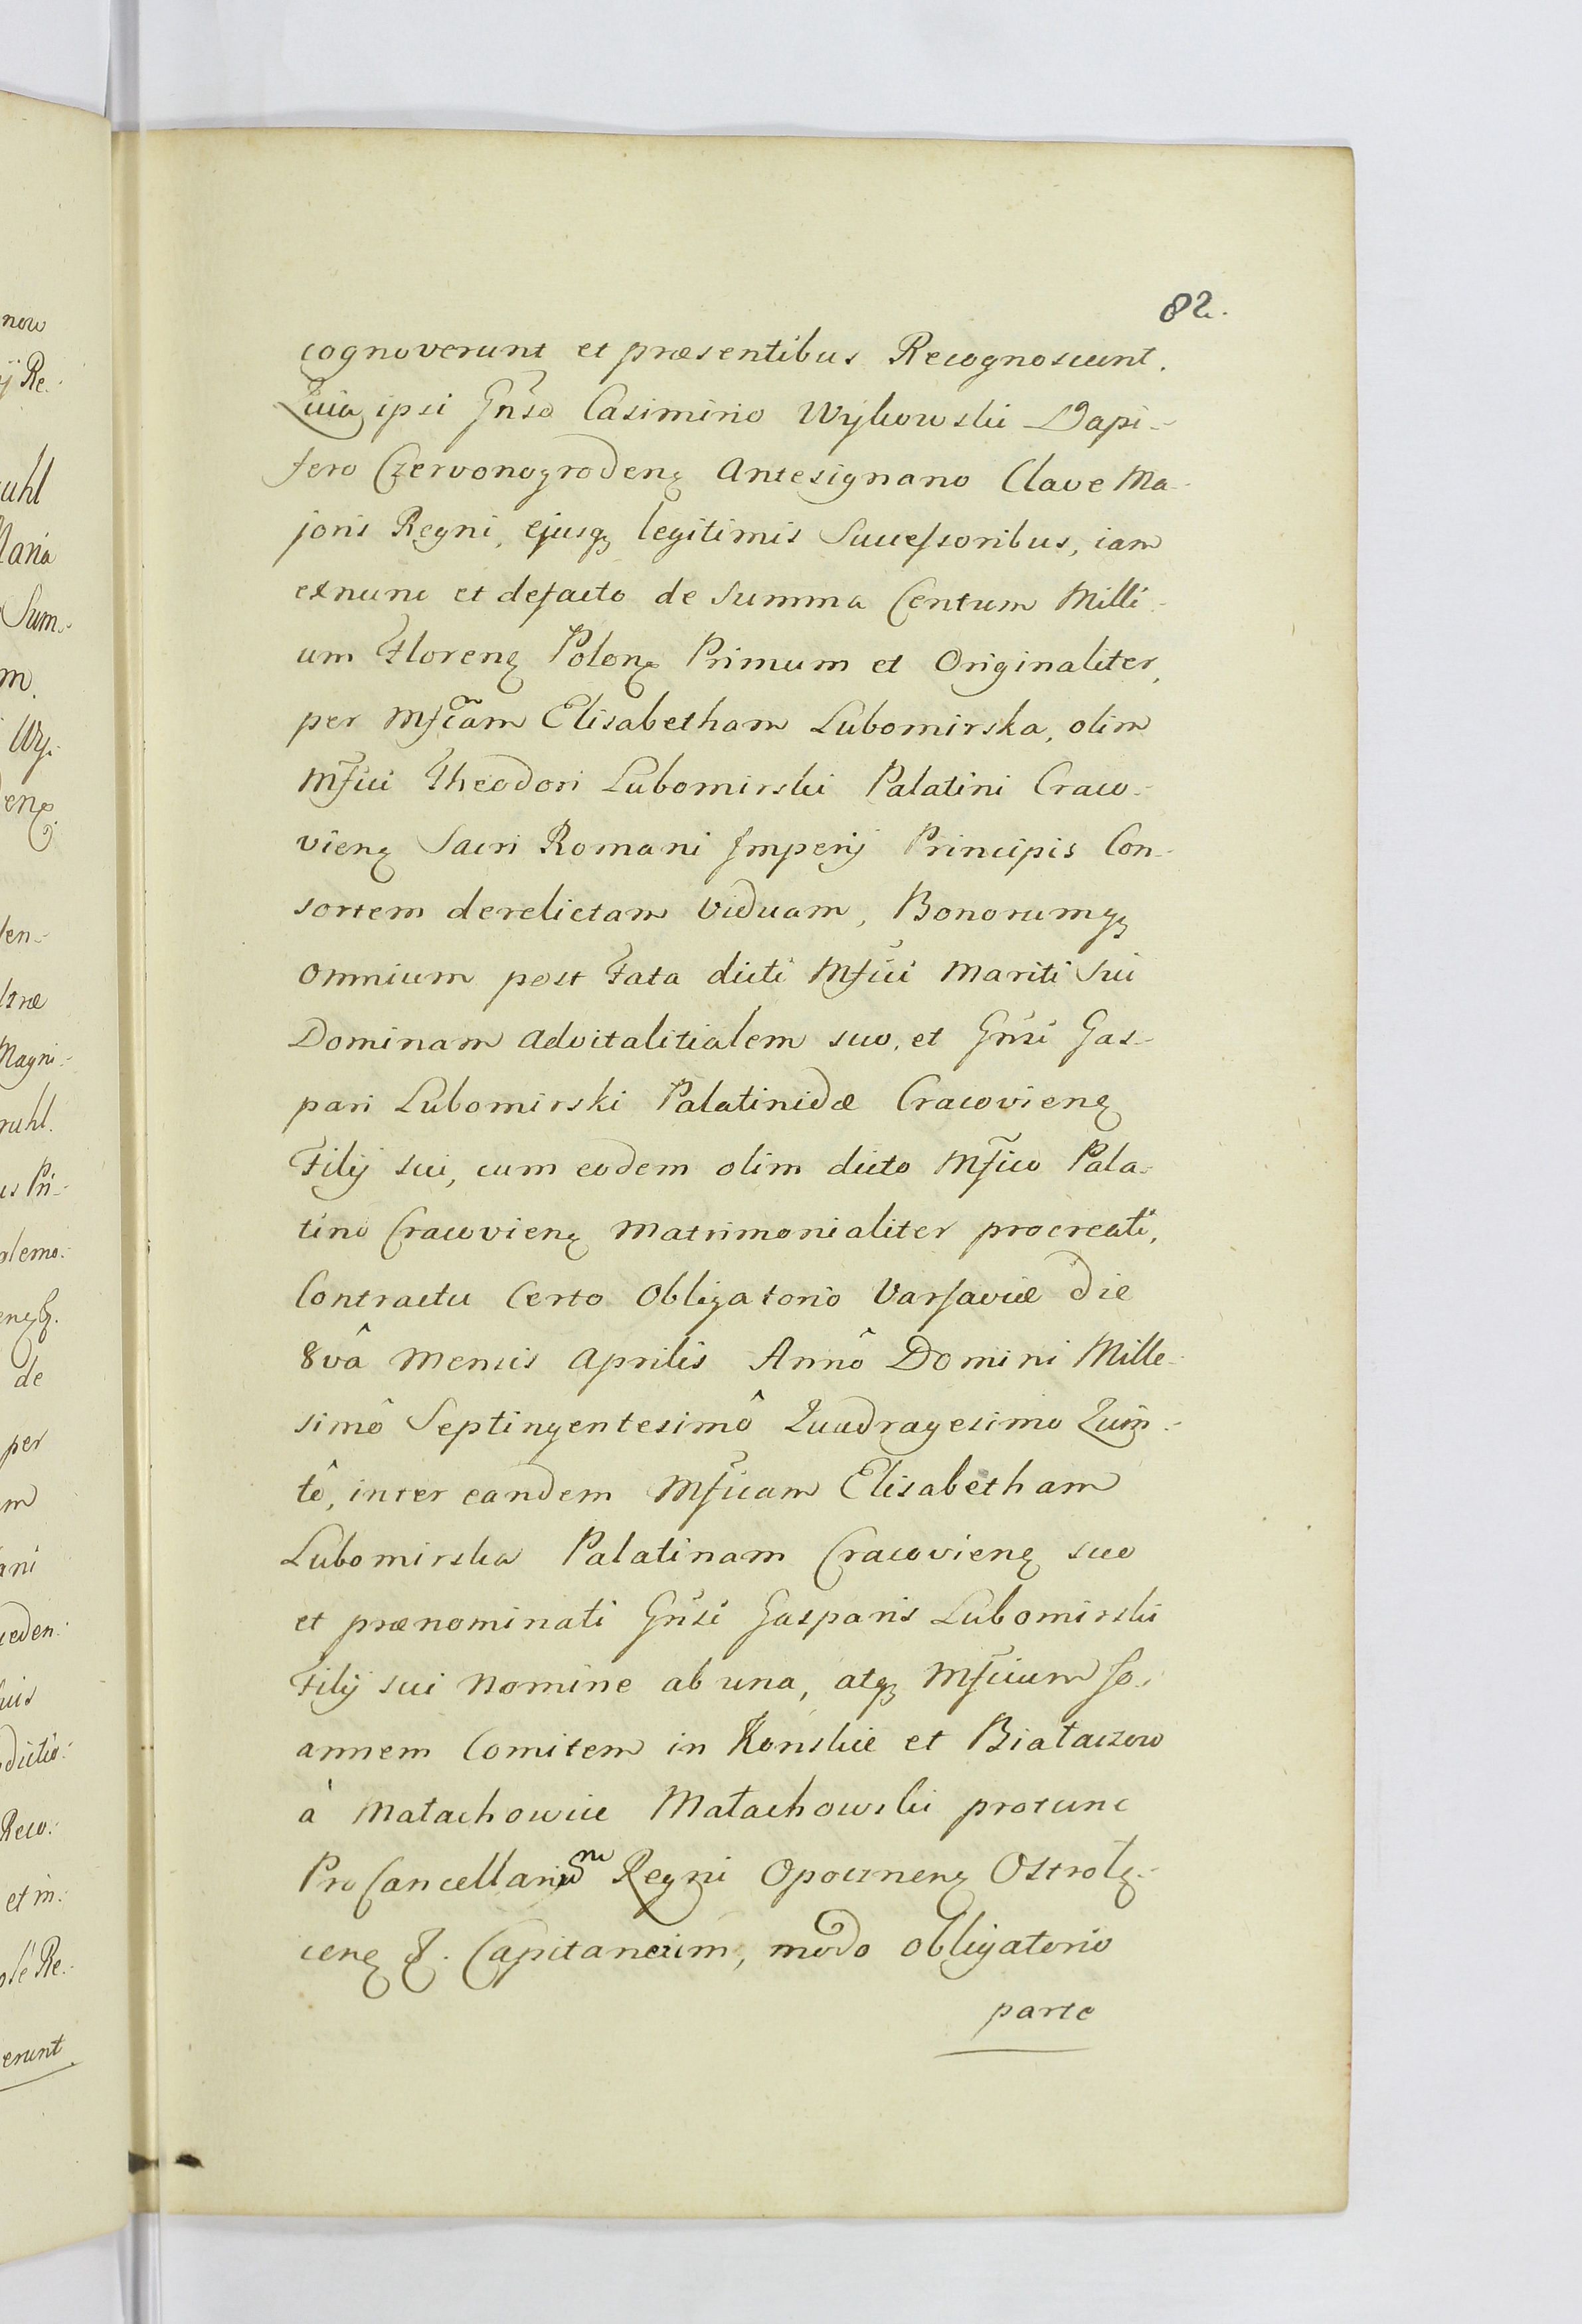 82.
cognoverunt et præsentibus Recognoscunt.
Quia ipsi Gñso Casimirio Wykowski Dapi-
fero Czervonogrodenę Antesignano Clave Ma-
joris Regni, ejusqȝ legitimis Successoribus, iam
exnunc et defacto de Summa Centum Milli-
um Florenę Polonę Primum et Originaliter,
per Mfcam Elisabetham Lubomirska, olim
Mfici Theodori Lubomirski Palatini Craco-
vienę Sacri Romani Imperij Principis Con-
sortem derelictam Viduam, Bonorumqȝ
omnium post Fata dicti Mfici Mariti Sui
Dominam advitalitialem suo, et Gñsi Gas-
pari Lubomirski Palatinidæ Cracovienę
Filij sui, cum eodem olim dicto Mfico Pala-
tino Cracovienę Matrimonialiter procreati,
Contractu Certo Obligatorio Varsaviæ die
8vâ Mensis Aprilis Annô Domini Mille-
simô Septingentesimô Quadragesimo Quin-
tô, inter eandem Mficam Elisabetham
Lubomirska Palatinam Cracovienę suo
et prænominati Gñsi Gasparis Lubomirski
Filij sui Nomine ab una, atqȝ Mficum Jo-
annem Comitem in Konskie et Białaczow
à Małachowice Małachowski protunc
ProCancellarium Regni Opocznenę Ostrołę-
cenę &. Capitaneum, modo obligatorio
parte
now
ij Re:
uhl
Maria
Sum-
m.
Wy-
enę.
len-
Magni-
ruhl.
us Pri-
de
per
m
ani
ceden:
dictio:
Reco:
et in:
Re:
erunt